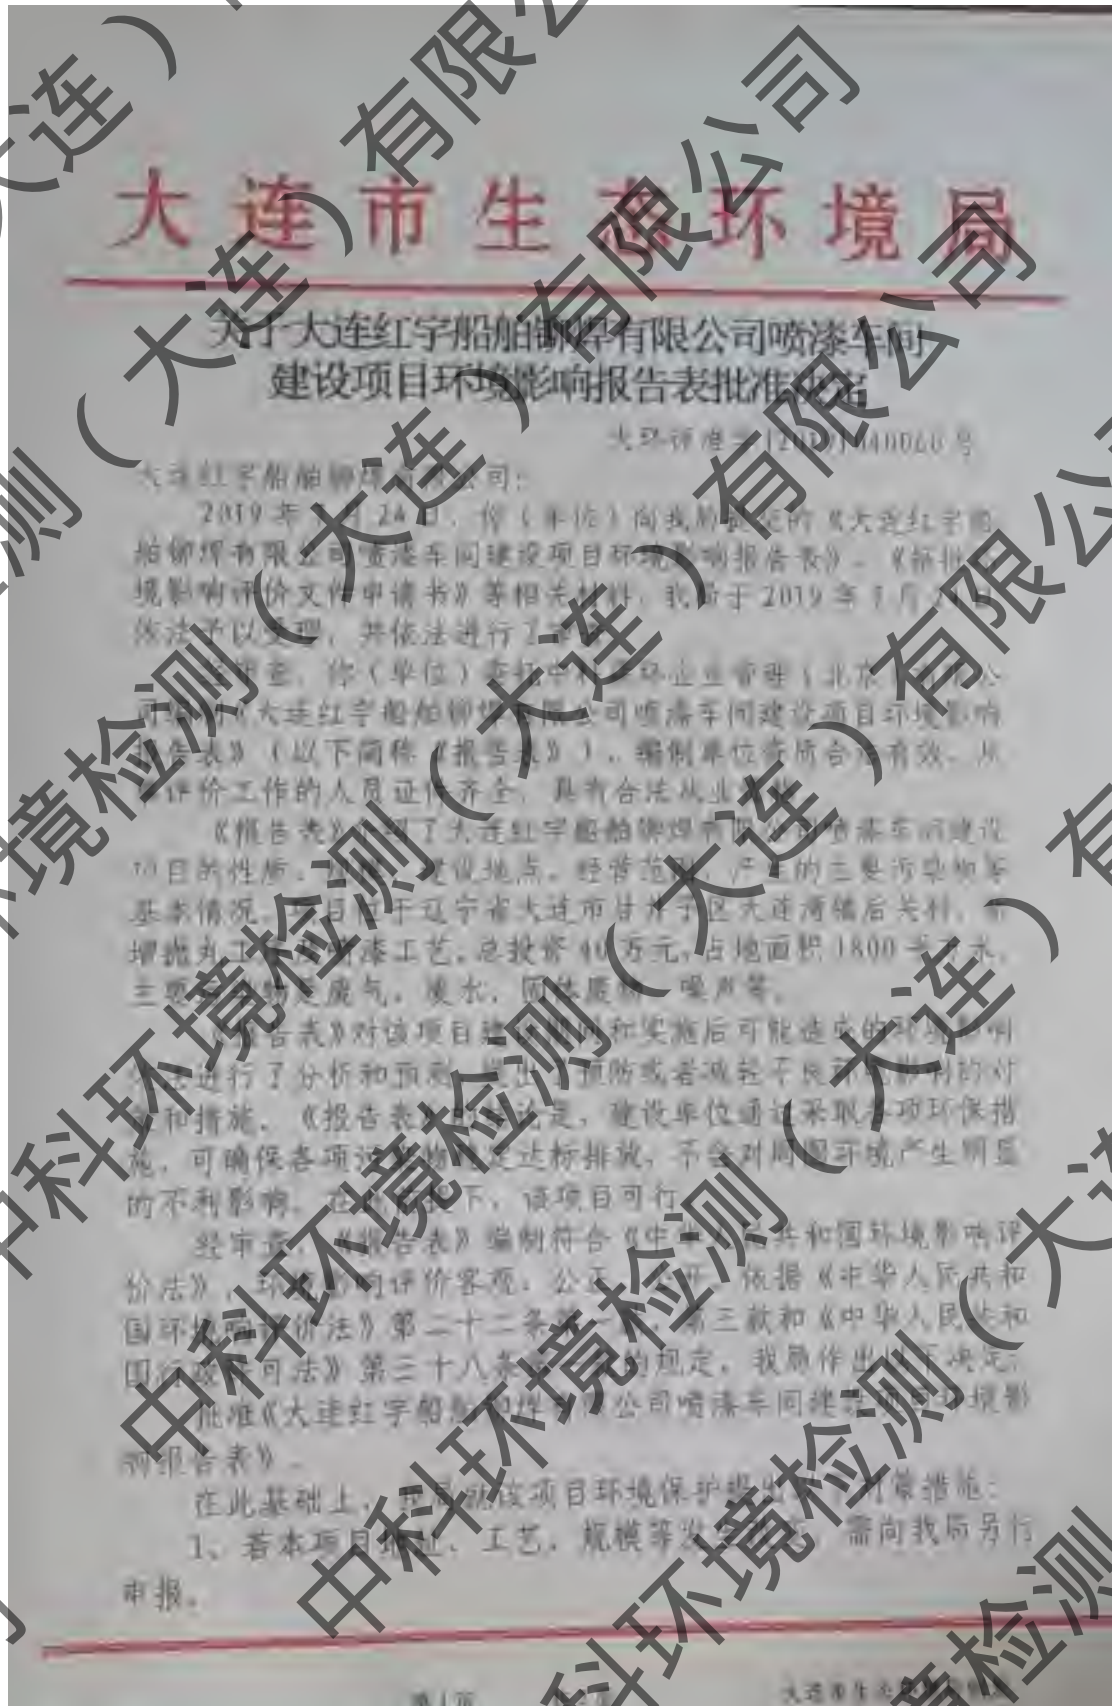 大连市生态环境局
关于大连红宇船舶铆焊有限公司喷漆车间
建设项目环境影响报告表批准决定
大环评准字[2019]040060号
大连红宇船舶铆焊有限公司:
2019年 月24日,你(单位)向我局提交的《大连红宇船
舶铆焊有限公司喷漆车间建设项目环境影响报告表》、《报批
境影响评价文件申请书》等相关材料,我局于2019年 月 日
依法予以受理,并依法进行了
经审查,你(单位)委托中 环企业管理(北京)有限公
司 《大连红宇船舶铆焊有限公司喷漆车间建设项目环境影响
报告表》(以下简称《报告表》),编制单位资质合法有效,从
事评价工作的人员证件齐全,具有合法从业
《报告表》 了大连红宇船舶铆焊有限公司喷漆车间建设
项目的性质、规模、建设地点、经营范围、产生的主要污染物等
基本情况,项目位于辽宁省大连市甘井子区大连湾镇后关村,新
增抛丸工艺及喷漆工艺,总投资40万元,占地面积1800平方米,
主要污染物是废气、废水、固体废物、噪声等。
《报告表》对该项目建设期间和实施后可能造成的环境影响
进行了分析和预测,提出了预防或者减轻不良环境影响的对
策和措施。《报告表》的结论是,建设单位通过采取各项环保措
施,可确保各项污染物稳定达标排放,不会对周围环境产生明显
的不利影响。在此前提下,该项目可行。
经审查,《报告表》编制符合《中华人民共和国环境影响评
价法》,环境影响评价客观、公正、公开,依据《中华人民共和
国环境影响评价法》第二十二条第一款、第三款和《中华人民共和
国行政许可法》第三十八条第一款的规定,我局作出以下决定:
批准《大连红宇船舶铆焊有限公司喷漆车间建设项目环境影
响报告表》。
在此基础上,我局就该项目环境保护提出以下对策措施:
1、若本项目地址、工艺、规模等发生改变,需向我局另行
申报。
第1页
大连市生态环境局
中科环境检测(大连)有限公司
中科环境检测(大连)有限公司
中科环境检测(大连)有限公司
中科环境检测(大连)有限公司